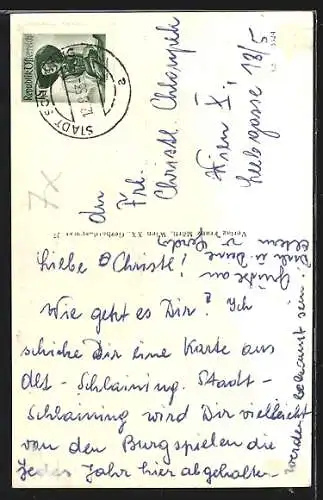 Republik Österreich
STADT SCH
7x
An
Frl.
Christl
Wien X.,
Leebgasse 18/5
Verlag Franz Mörtl, Wien XX., Gerhardusgasse 27
Liebe Christl!
Wie geht es Dir? Ich
schicke Dir eine Karte aus
Alt-Schlaining. Stadt-
Schlaining wird Dir vielleicht
von den Burgspielen die
jedes Jahr hier abgehalten
werden bekannt sein.
Grüße an
Dich u. Deine
Eltern v. Gerda